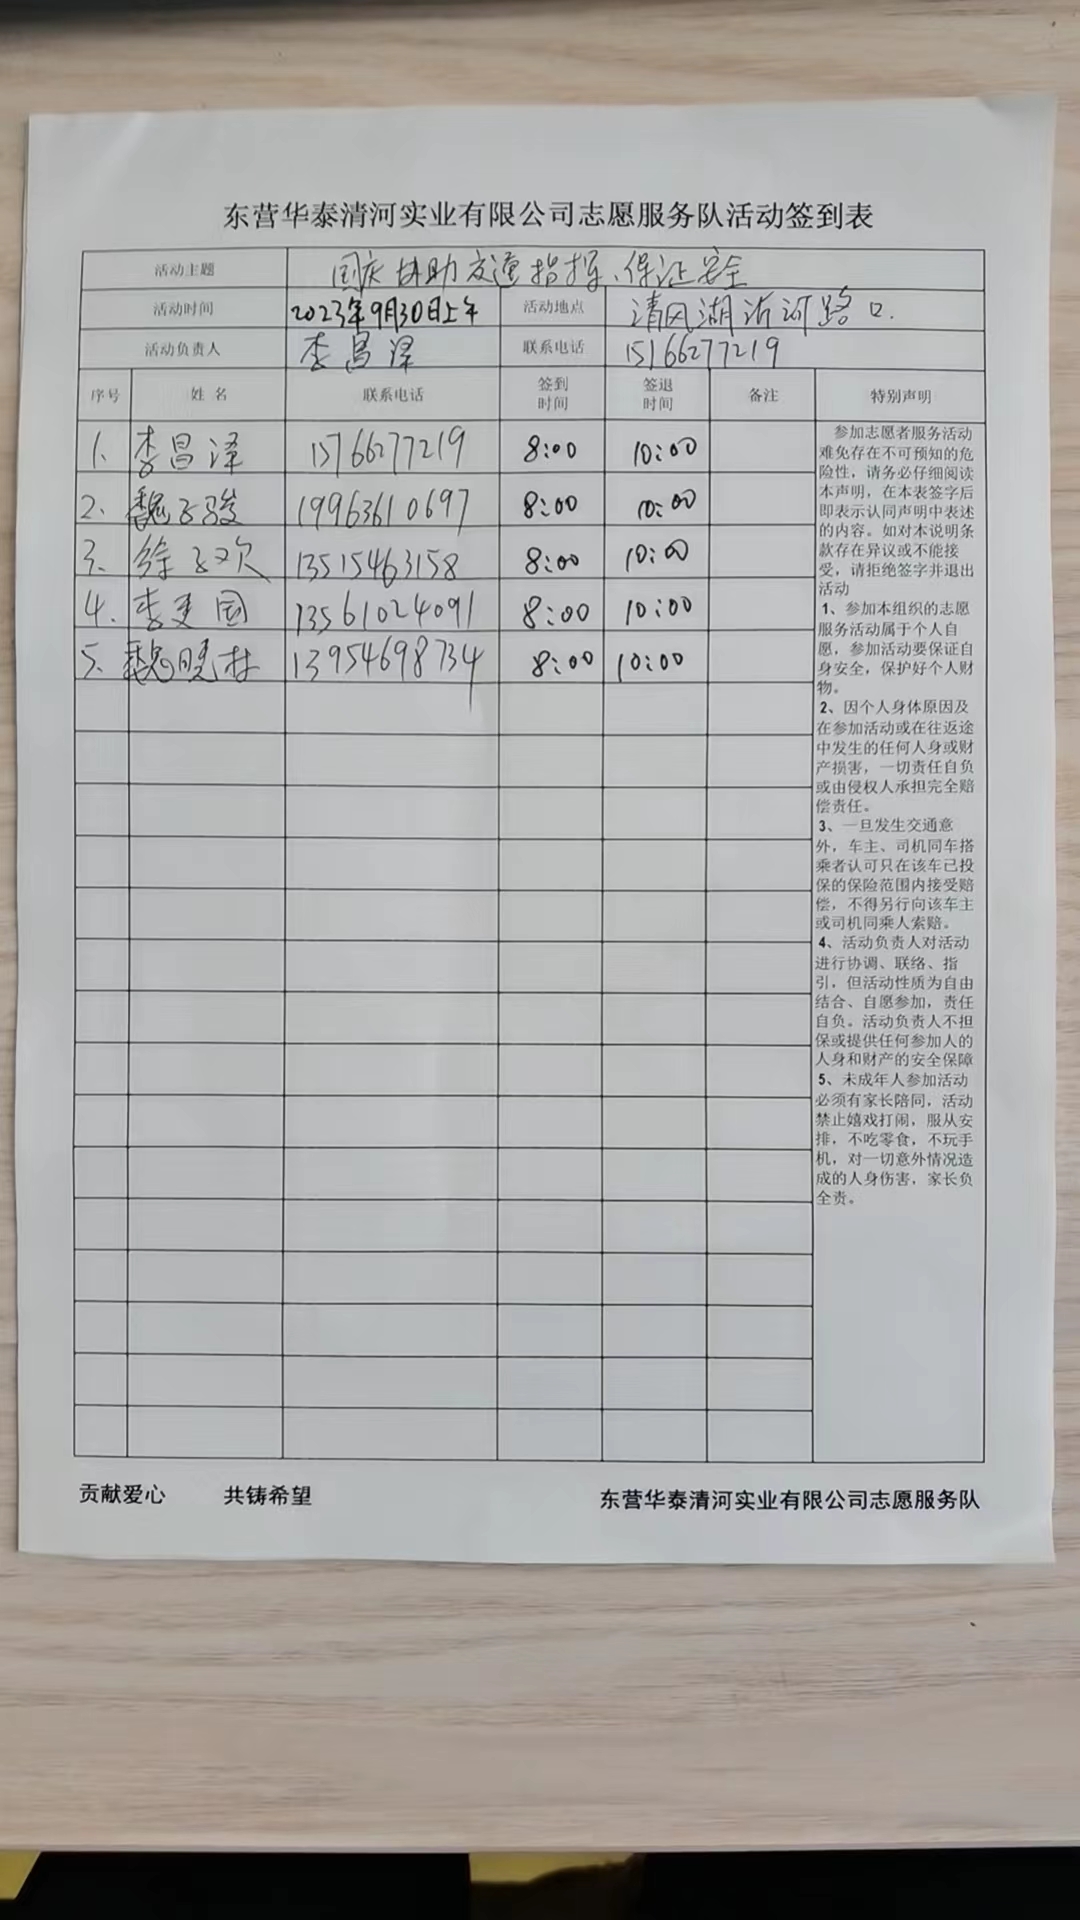 东营华泰清河实业有限公司志愿服务队活动签到表
活动主题 国庆协助交通指挥、保证安全
活动时间 2023年9月30日上午 活动地点 清风湖沂河路口.
活动负责人 李昌泽 联系电话 15166277219
序号 姓名 联系电话 签到时间 签退时间 备注 特别声明
1、 李昌泽 15166277219 8:00 10:00
2、 魏子骏 19963610697 8:00 10:00
3、 徐子欢 13515463158 8:00 10:00
4、 李建国 13561024091 8:00 10:00
5、 魏晓林 13954698734 8:00 10:00
参加志愿者服务活动
难免存在不可预知的危
险性，请务必仔细阅读
本声明，在本表签字后
即表示认同声明中表述
的内容。如对本说明条
款存在异议或不能接
受，请拒绝签字并退出
活动
1、参加本组织的志愿
服务活动属于个人自
愿，参加活动要保证自
身安全，保护好个人财
物。
2、因个人身体原因及
在参加活动或在往返途
中发生的任何人身或财
产损害，一切责任自负
或由侵权人承担完全赔
偿责任。
3、一旦发生交通意
外，车主、司机同车搭
乘者认可只在该车已投
保的保险范围内接受赔
偿，不得另行向该车主
或司机同乘人索赔。
4、活动负责人对活动
进行协调、联络、指
引，但活动性质为自由
结合、自愿参加，责任
自负。活动负责人不担
保或提供任何参加人的
人身和财产的安全保障
5、未成年人参加活动
必须有家长陪同，活动
禁止嬉戏打闹，服从安
排，不吃零食，不玩手
机，对一切意外情况造
成的人身伤害，家长负
全责。
贡献爱心 共铸希望 东营华泰清河实业有限公司志愿服务队